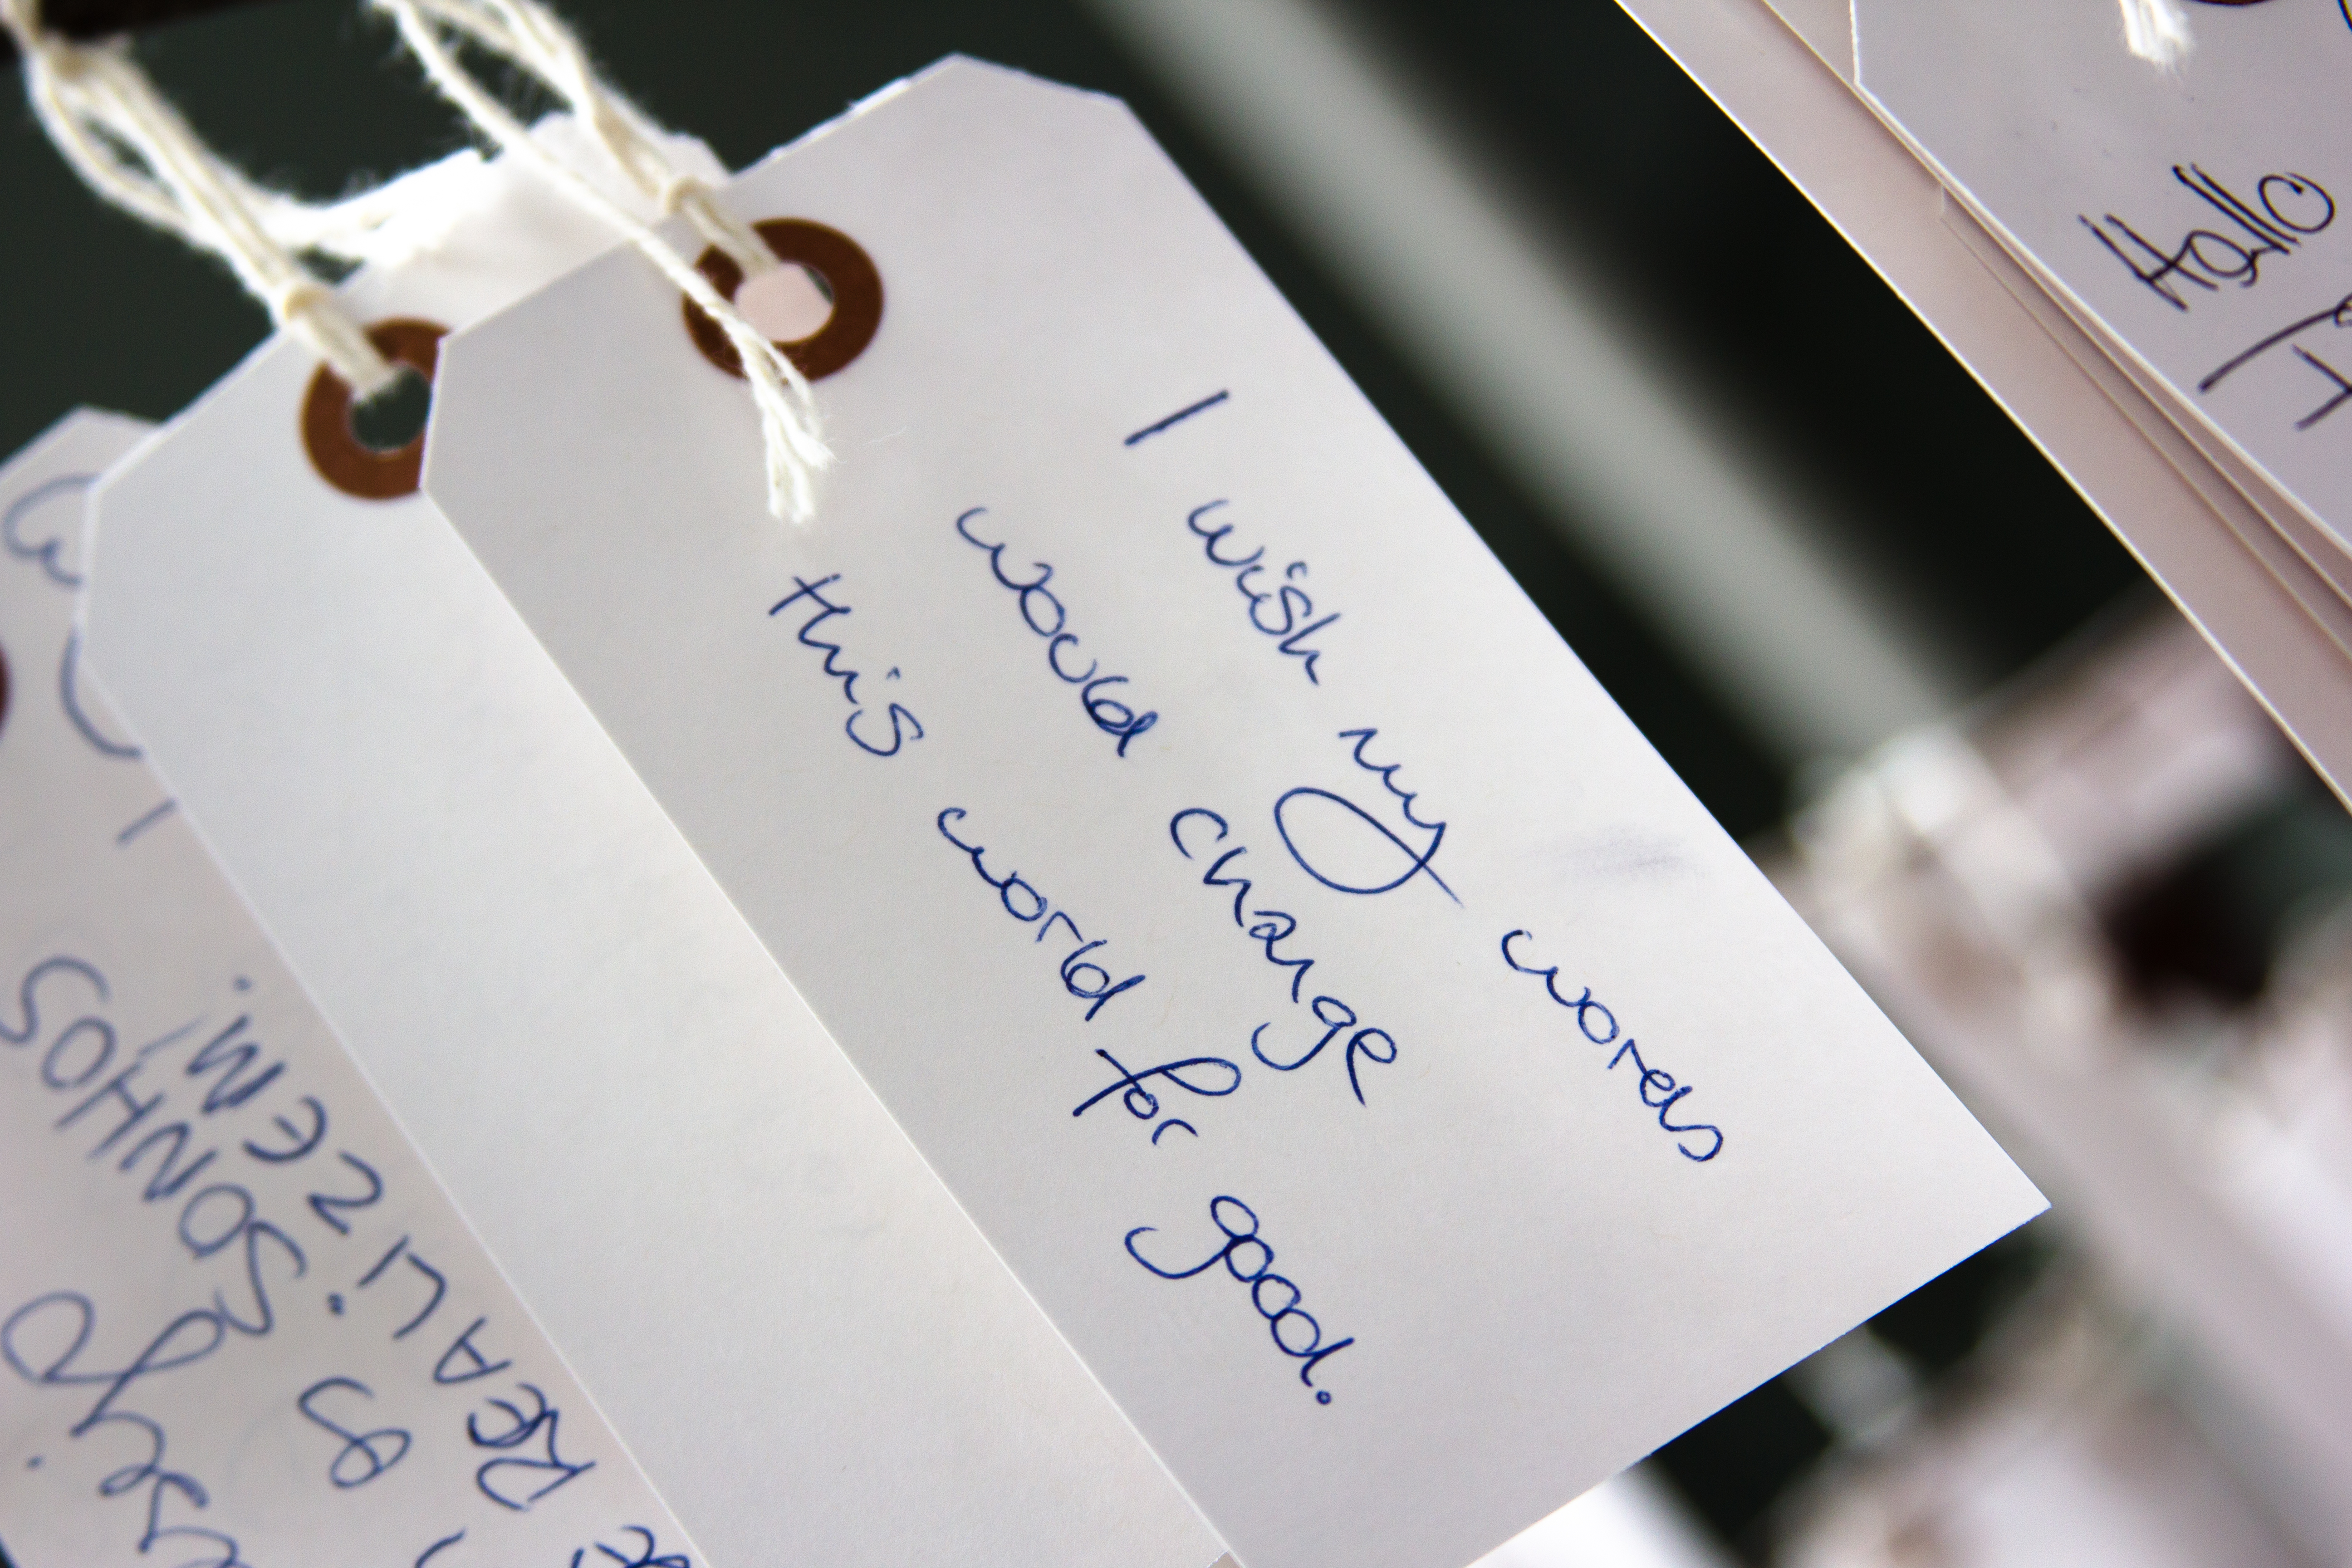 I wish my words
would change
this world for good.
Hallo
SONHOS
REALIZEM.